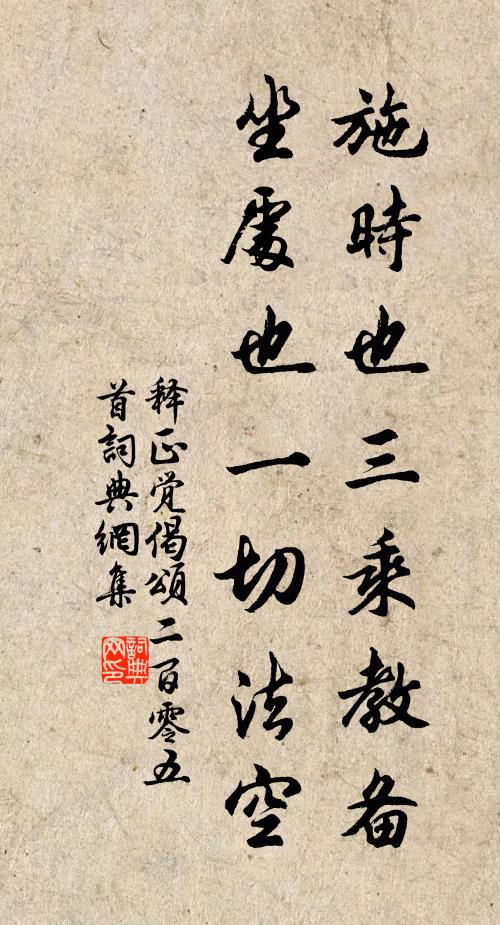 施時也三乘教备
坐處也一切法空
释正覺偈頌二百零五
首詞典網集
詞典网印